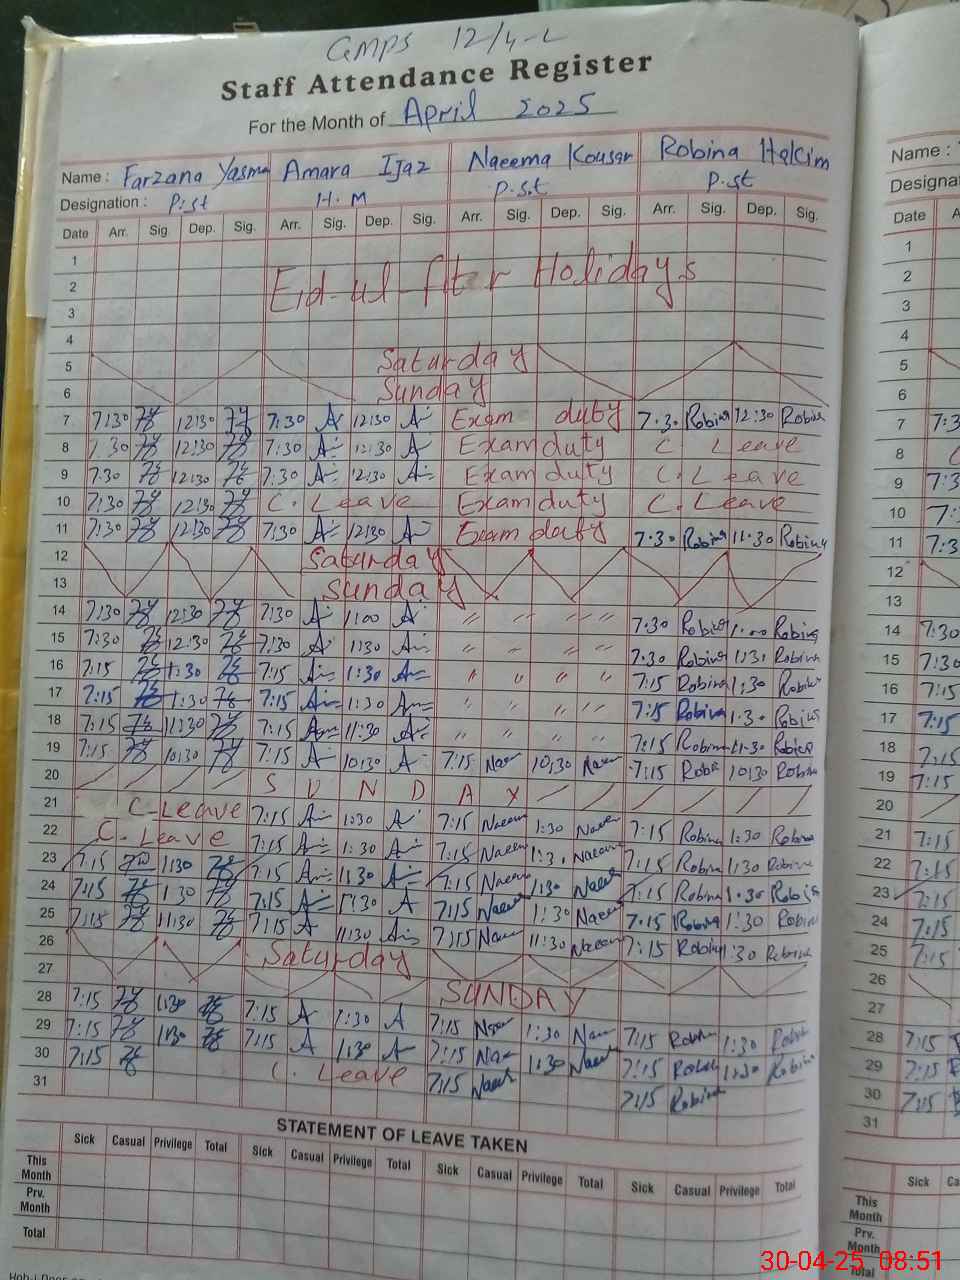 GMPS 12/4-L
Staff Attendance Register
For the Month of April 2025
Name : Farzana Yasma Amara Ijaz Naeema Kousar Robina Hakim
Designation : P.st H.M P.s.t P.st
Date Arr. Sig. Dep. Sig. Arr. Sig. Dep. Sig. Arr. Sig. Dep. Sig. Arr. Sig. Dep. Sig.
1
2 Eid-ul-fiter Holidays
3
4
5 Saturday
6 Sunday
7 7:30 12:30 7:30 A 12:30 A Exam duty 7.30 Robina 12:30 Robina
8 7.30 12:30 7:30 A 12:30 A Exam duty C. Leave
9 7.30 12:30 7:30 A 12:30 A Exam duty C. Leave
10 7:30 12:30 C. Leave Exam duty C. Leave
11 7:30 12:30 7:30 A 12:30 A Exam duty 7.30 Robina 11.30 Robina
12 Saturday
13 Sunday
14 7:30 12:30 7:30 A 11:00 A " " " " 7.30 Robina 1:00 Robina
15 7:30 12:30 7:30 A 1:30 A " " " " 7.30 Robina 1:30 Robina
16 7:15 1:30 7:15 A 1:30 A " " " " 7:15 Robina 1:30 Robina
17 7:15 1:30 7:15 A 1:30 A " " " " 7:15 Robina 1:30 Robina
18 7:15 11:30 7:15 A 11:30 A " " " " 7:15 Robina 11:30 Robina
19 7:15 10:30 7:15 A 10:30 A 7:15 Naeem 10:30 Naeem 7:15 Robi 10:30 Robina
20 S U N D A Y
21 C-Leave 7:15 A 1:30 A 7:15 Naeem 1:30 Naeem 7:15 Robina 1:30 Robina
22 C. Leave 7:15 A 1:30 A 7:15 Naeem 1:30 Naeem 7:15 Robina 1:30 Robina
23 7:15 1:30 7:15 A 1:30 A 7:15 Naeem 1:30 Naeem 7:15 Robina 1:30 Robina
24 7:15 1:30 7:15 A 1:30 A 7:15 Naeem 1:30 Naeem 7.15 Robina 1:30 Robina
25 7:15 11:30 7:15 A 11:30 A 7:15 Naeem 11:30 Naeem 7:15 Robina 1:30 Robina
26 Saturday
27 SUNDAY
28 7:15 1:30 7:15 A 1:30 A 7:15 Naeem 1:30 Naeem 7:15 Robina 1:30 Robina
29 7:15 1:30 7:15 A 1:30 A 7:15 Naeem 1:30 Naeem 7:15 Robina 1:30 Robina
30 7:15 C. Leave 7:15 Naeem 7:15 Robina
31
STATEMENT OF LEAVE TAKEN
Sick Casual Privilege Total Sick Casual Privilege Total Sick Casual Privilege Total Sick Casual Privilege Total
This Month
Prv. Month
Total
Name :
Date
1
2
3
4
5
6
7 7:3
8
9 7:3
10 7:
11 7:3
12
13
14 7:30
15 7:30
16 7:15
17 7:15
18 7:15
19 7:15
20
21 7:15
22 7:15
23 7:15
24 7:15
25 7:15
26
27
28 7:15
29 7:15
30 7:15
31
Sick
This Month
Prv. Month
Total
30-04-25 08:51